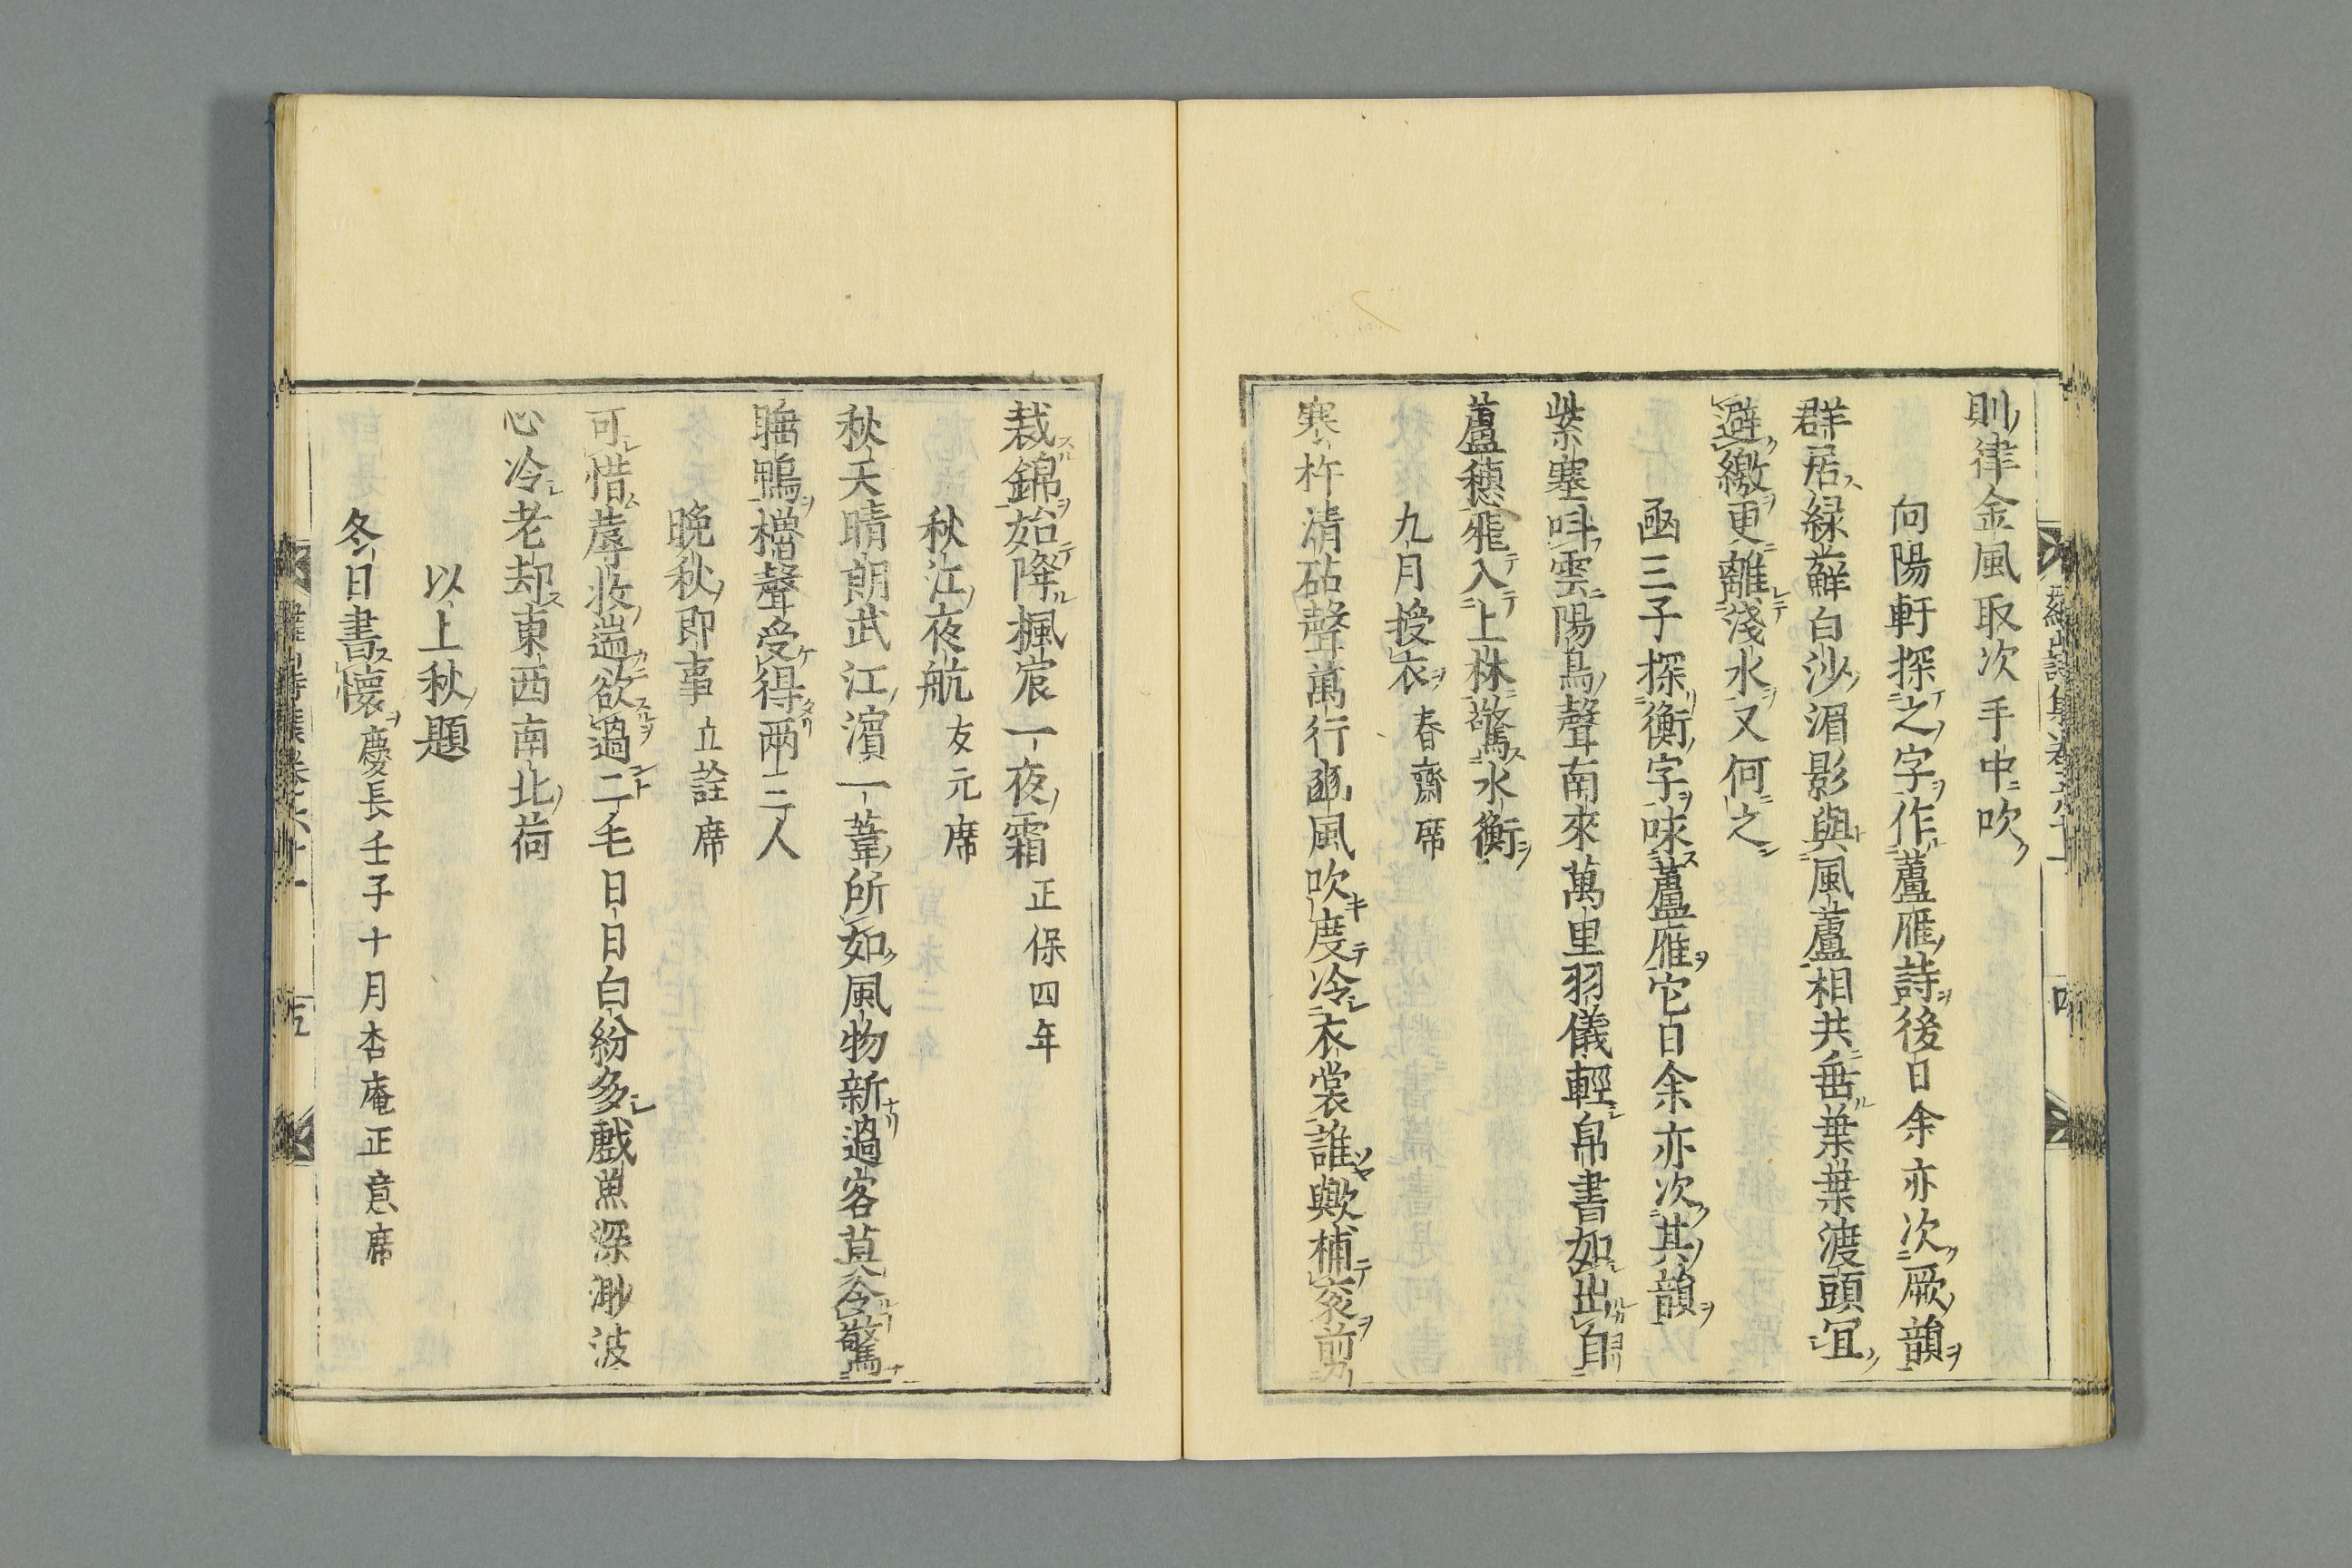 則律金風取次手中吹
向陽軒探之字作蘆雁詩後日余亦次厥韻
群居綠蘚白沙湄影與風蘆相共垂葉葉渡頭冝
避繳更離淺水又何之
函三子探衡字咏蘆雁它日余亦次其韻
紫塞呌雲陽鳥聲南來萬里羽儀輕帛書如出自
蘆穗飛入上林驚水衡
九月授衣 春齋席
寒杵清砧聲萬行豳風吹度冷衣裳誰歟補袞剪
裁錦始降楓宸一夜霜 正保四年
秋江夜航 友元席
秋天晴朗武江濱一葦所如風物新過客莫令驚
睡鴨櫓聲受得兩三人
晚秋即事 立詮席
可惜蓐收遄欲過二毛日日白紛多戲魚深渺波
心冷老却東西南北荷
以上秋題
冬日書懷 慶長壬子十月杏庵正意席